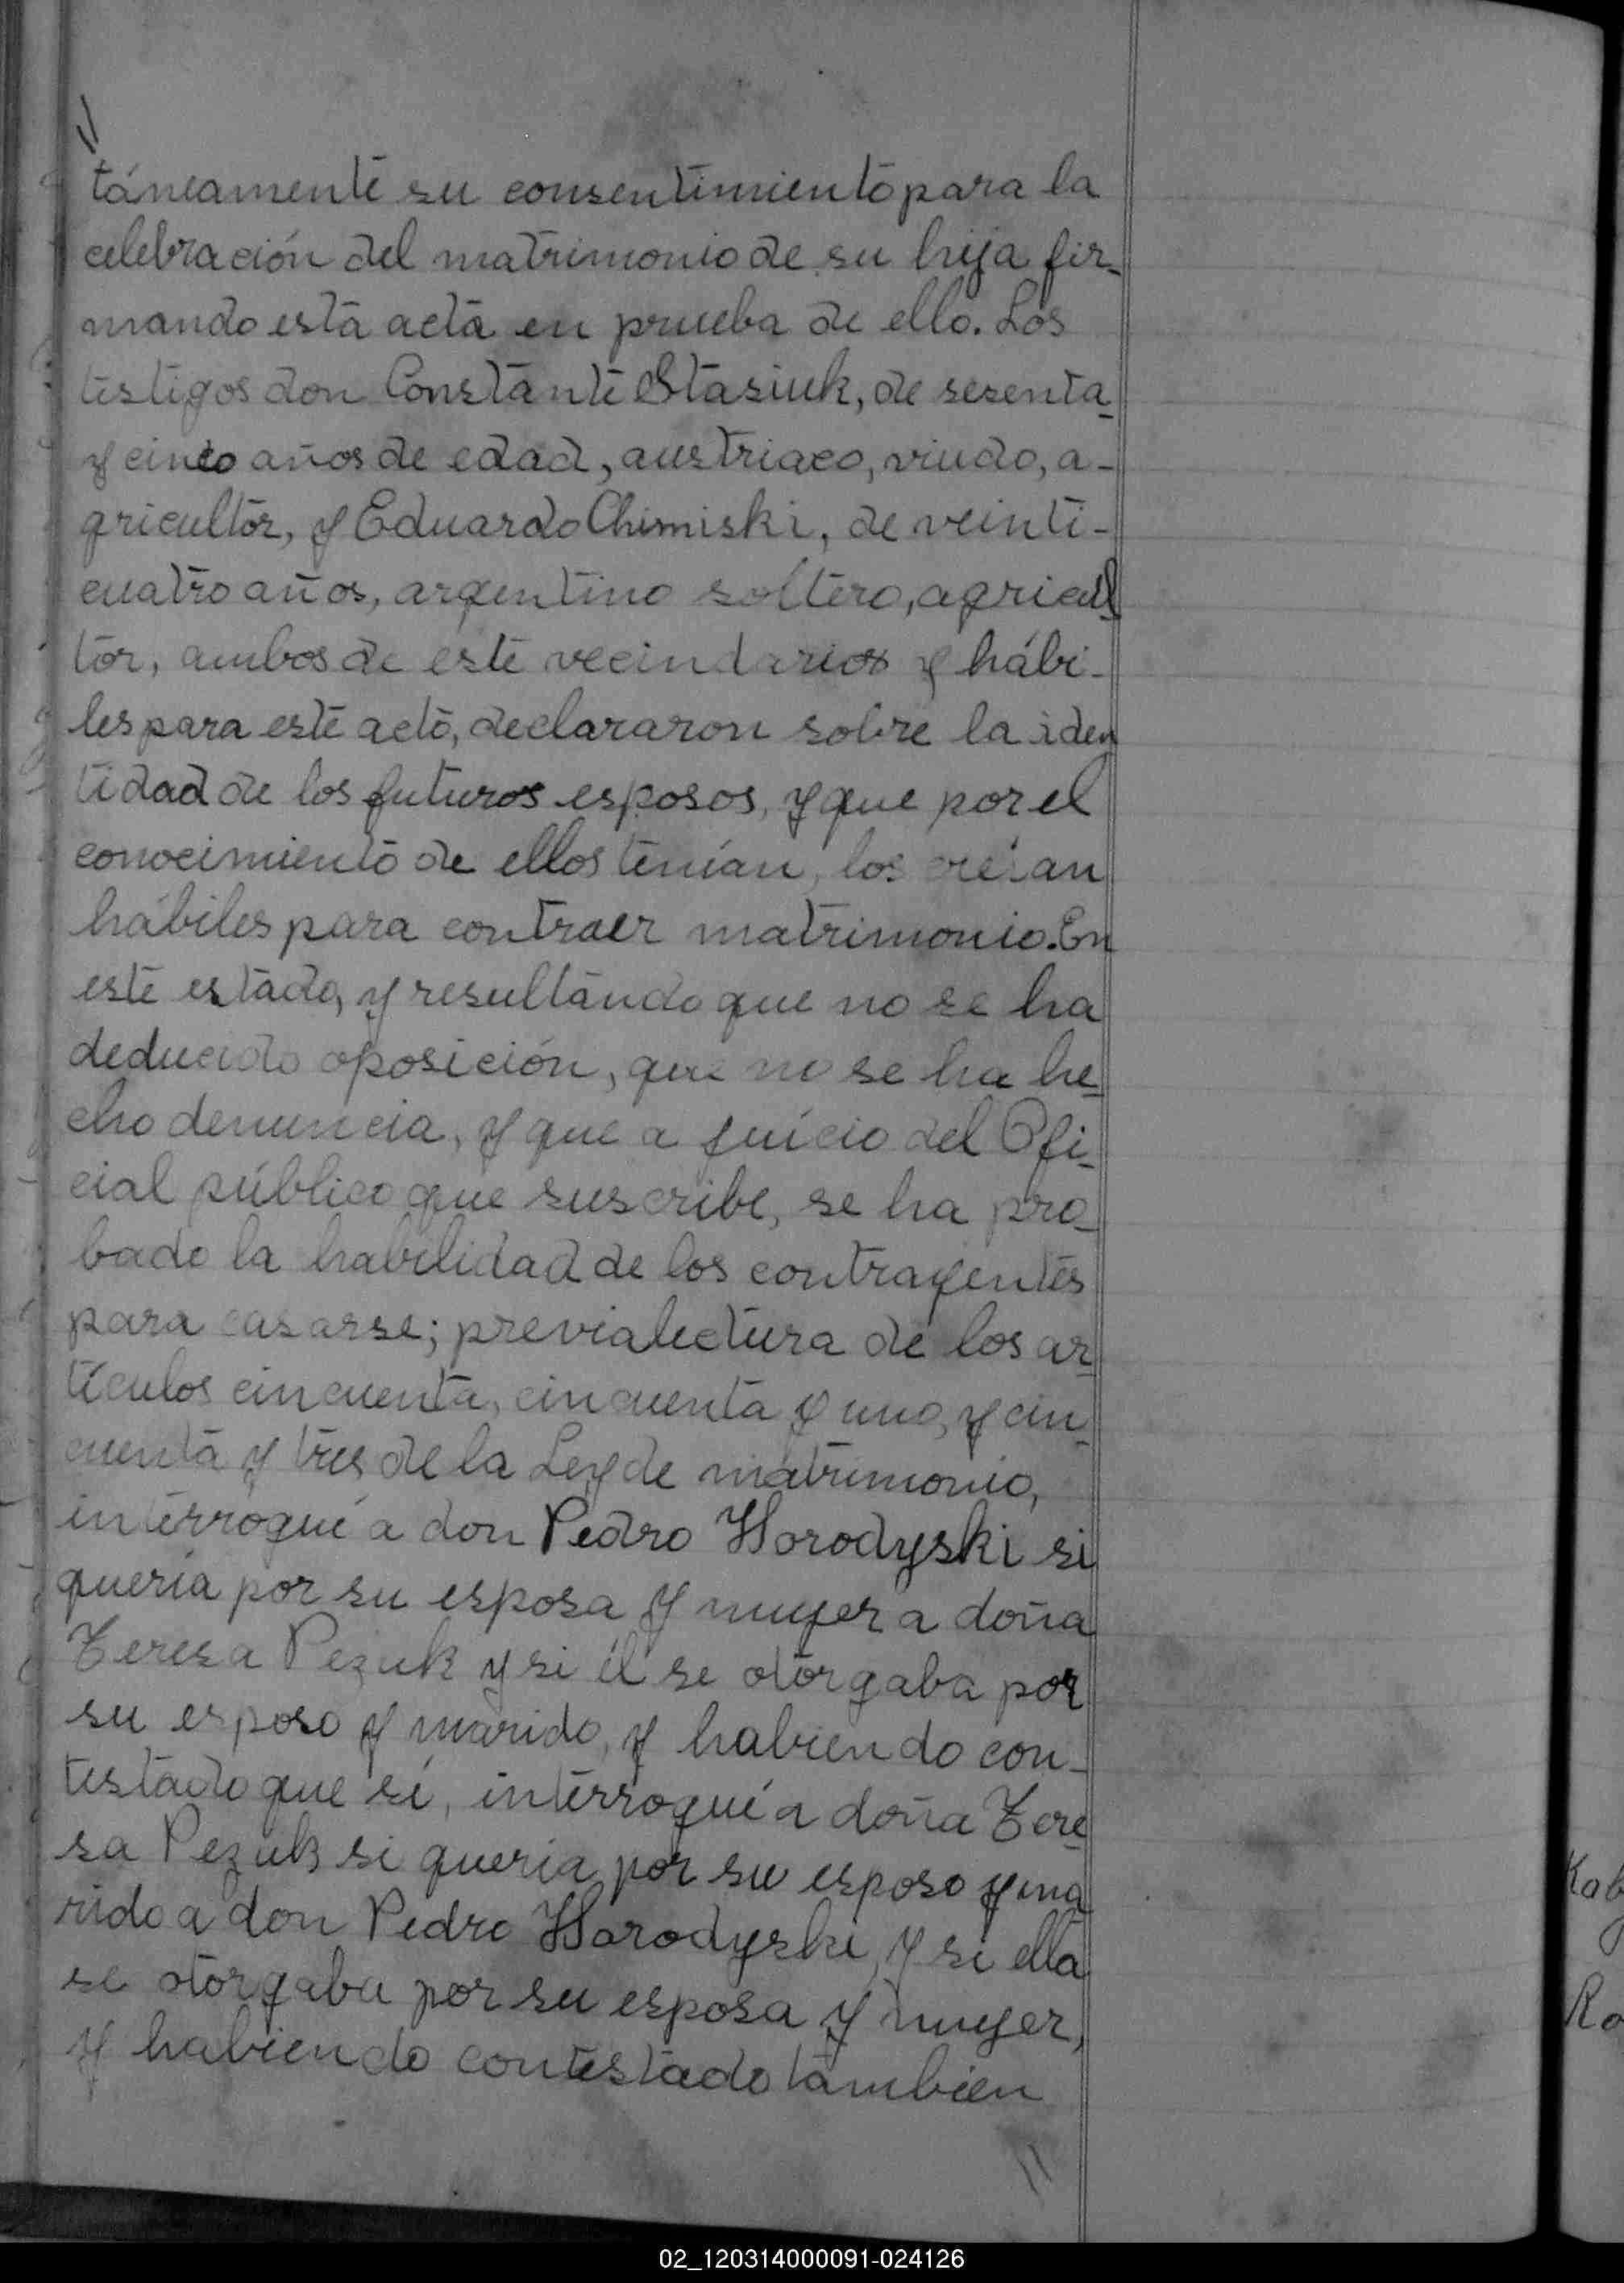 //
táneamente su consentimiento para la
celebración del matrimonio de su hija fir-
mando esta acta en prueba de ello. Los
testigos don Constante Stasiuk, de sesenta
y cinco años de edad, austriaco, viudo, a-
gricultor, y Eduardo Chimiski, de veinti-
cuatro años, argentino soltero, agricul
tor, ambos de este vecindario y hábi-
les para este acto, declararon sobre la iden
tidad de los futuros esposos, y que por el
conocimiento de ellos tenían, los creían
hábiles para contraer matrimonio. En
este estado, y resultando que no se ha
deducido oposición, que no se ha he-
cho denuncia, y que a juício del Ofi-
cial público que suscribe, se ha pro-
bado la habilidad de los contrayentes
para casarse; previa lectura de los ar-
tículos cincuenta, cincuenta y uno, y cin-
cuenta y tres de la Ley de matrimonio,
interrogué a don Pedro Horodyski si
quería por su esposa y mujer a doña
Teresa Pezuk y si él se otorgaba por
su esposo y marido, y habiendo con-
testado que sí, interrogué a doña Tere-
sa Pezuk si quería por su esposo y ma-
rido a don Pedro Horodyski, y si ella
se otorgaba por su esposa y mujer,
y habiendo contestado también
//
Kab
Ro
02_120314000091-024126